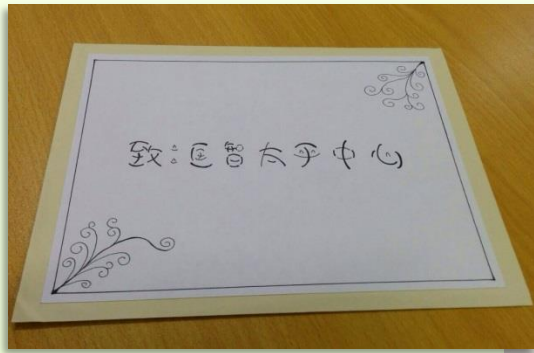 致:匡智太平中心